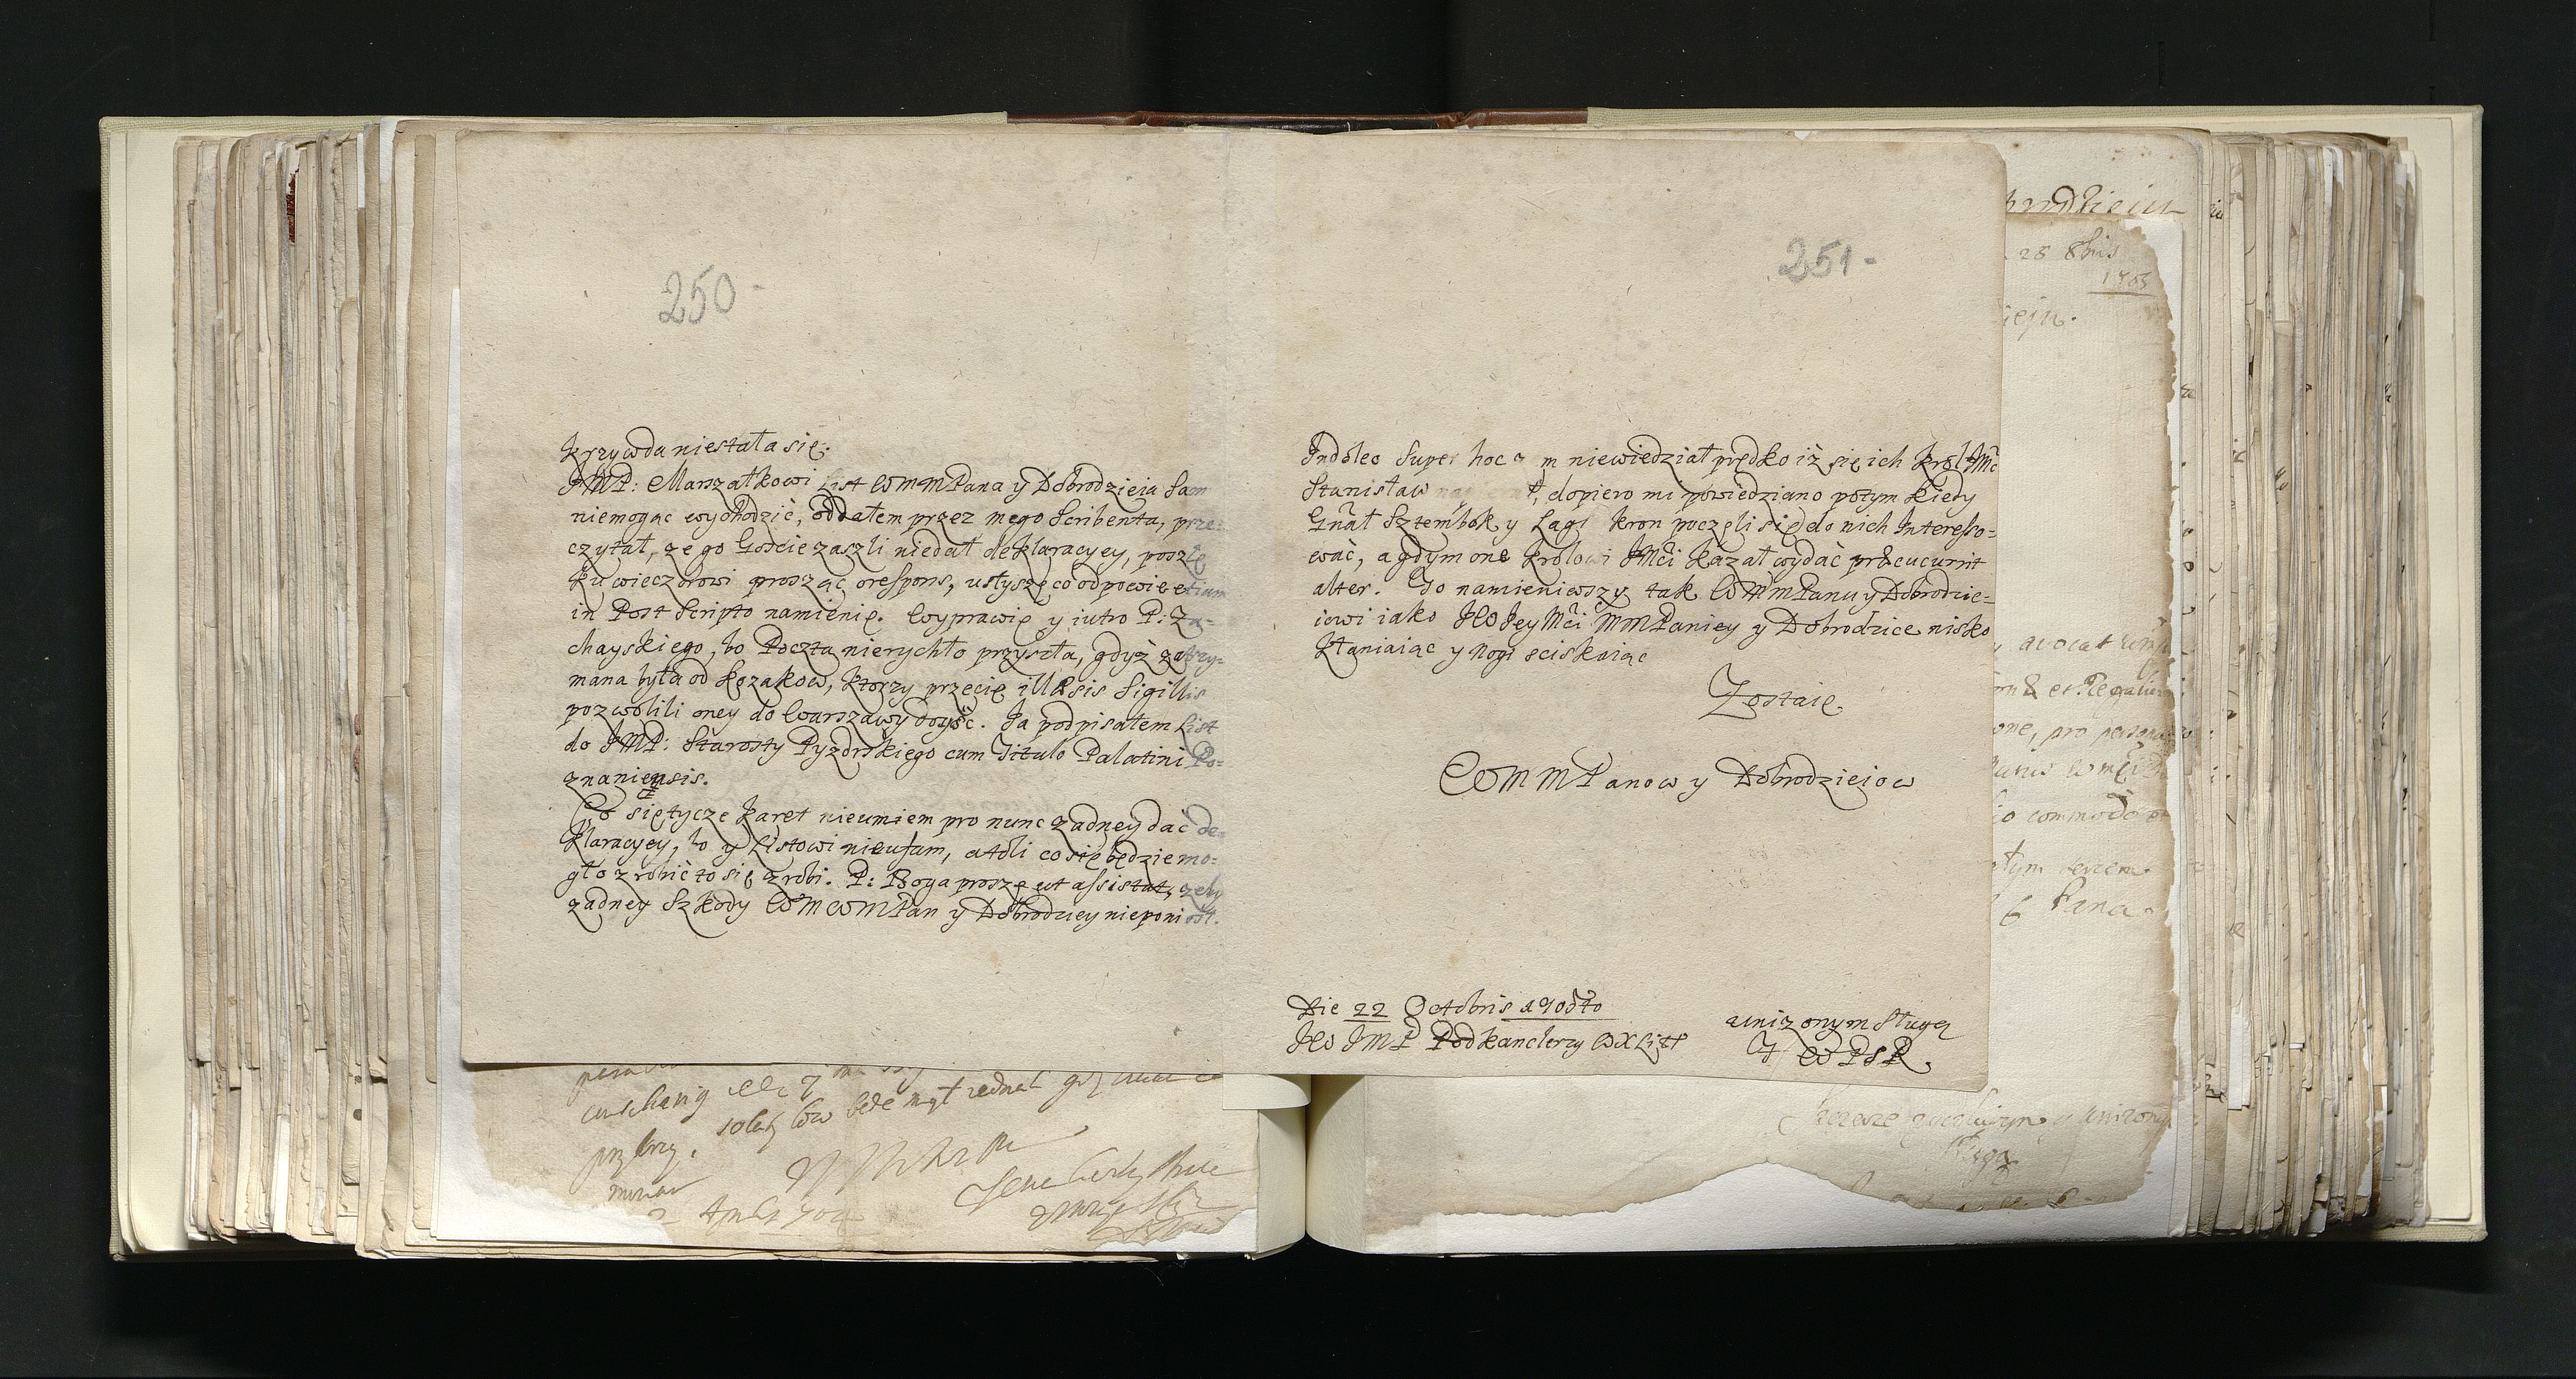 250-
krzywda niestała się.
JMP: Marszałkowi List WMMPana y Dobrodzieia Sam
niemogąc wychodzić, oddałem przez mego Scribenta, prze:
czytał, ze go Goscie zaszli niedał deklaracyey, poszlę
ku wieczorowi prosząc orespons, usłyszę co odpowie etiam
in Post Scripto namienię. Wyprawię y iutro P: Za=
chayskiego, bo Poczta nierychło przyszła, gdyż zatrzy=
mana była od Kozakow, ktorzy przecię illæsis Sigillis
pozwolili oney do Warszawy doyść. Ja podpisałem List
do JMP: Starosty Pyzdrskiego cum Titulo Palatini Po=
znaniensis.
Co się tycze Karet nieumiem pro nunc zadney dac de=
klaracyey, bo y Listowi nieufam, atoli co się będzie mo=
gło zrobić to się zrobi. P: Boga proszę ut assistat, zeby
zadney Szkody WMWMPan y Dobrodziey nieponiosł.
251-
Indoleo Super hoc m niewiedział prędko iż się ich Krol JMć
Stanisław dopiero mi powiedziano potym kiedy
Gnał Sztembok y Lagi kron poczęli się do nich Interesso=
wać, a gdym one Krolowi JMći kazał wydać præcucurrit
alter. To namieniwszy tak WMMPanu y Dobrodzie=
iowi iako JeoJey Mći MMPaniey y Dobrodzice nisko
kłaniaiąc y Nogi sciskaiąc
Zostaię.
WMMPanow y Dobrodzieiow
Die 22 Octobris 1705to
Jeo JMP Podkanclerzy WXLitt
unizonym Sługą
J WPSR.
28 8bris
1705
avocat
one, pro
commodo
Pana